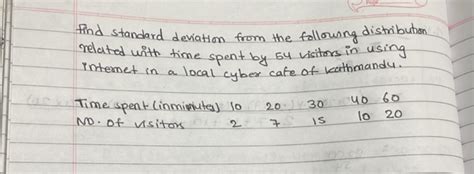 Find standard deviation from the following distribution
related with time spent by 54 visitors in using
internet in a local cyber cafe of kathmandu.
Time spent (in minutes) 10 20 30 40 60
NO. of visitors 2 7 15 10 20